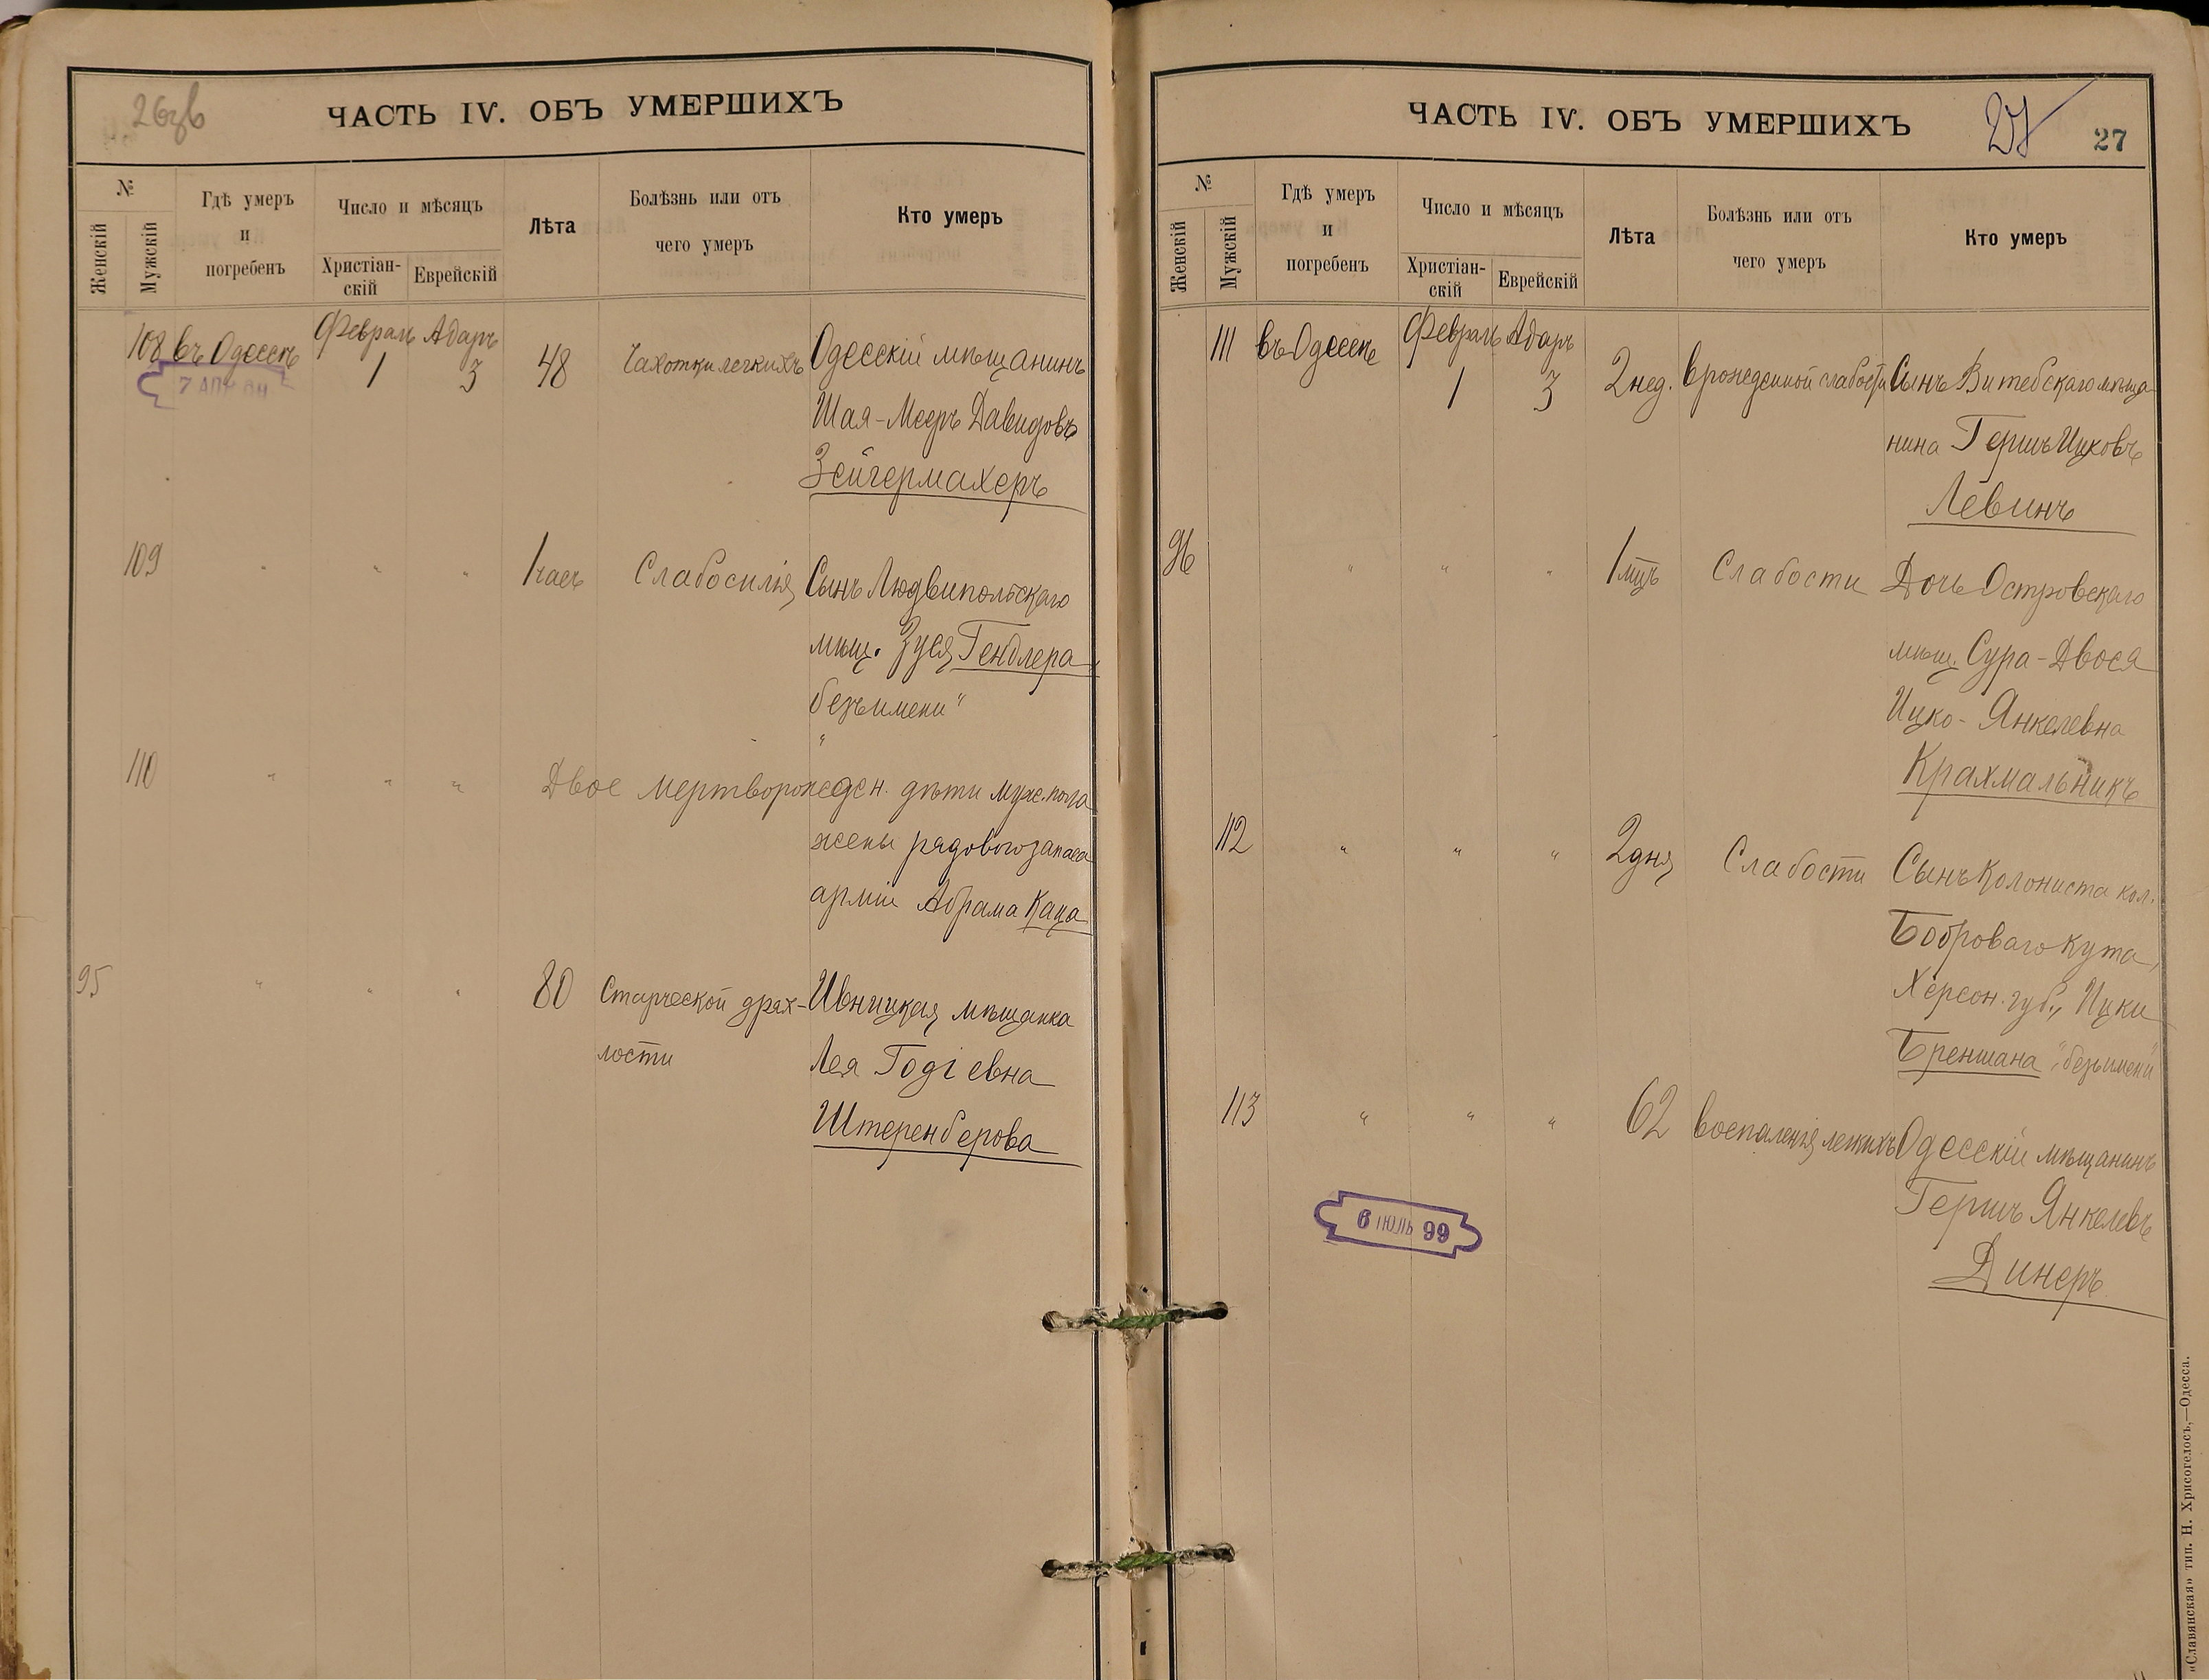 26зв
ЧАСТЬ IV. ОБЪ УМЕРШИХЪ
№
Женскій
Мужскій
Гдѣ умеръ
и
погребенъ
Число и мѣсяцъ
Христіан-
скій
Еврейскій
Лѣта
Болѣзнь или отъ
чего умеръ
Кто умеръ
108 въ Одессѣ Февраль Адаръ
1 3 48 Чахотки легкихъ Одесскій мѣщанинъ
7 АПР
Шая-Мееръ Давидовъ
Зейгермахеръ
109 " " " 1 часъ Слабосилія Сынъ Людвипольскаго
мѣщ. Зуся Гендлера,
безъ имени"
110 " " " Двое мертворожден. дѣти муж. пола
жены рядового запаса
арміи Абрама Каца
95 " " " 80 Старческой драх- Ивницкая мѣщанка
лости Лея Годіевна
Штеренберова
ЧАСТЬ IV. ОБЪ УМЕРШИХЪ
27
27
№
Женскій
Мужскій
Гдѣ умеръ
и
погребенъ
Число и мѣсяцъ
Христіан-
скій
Еврейскій
Лѣта
Болѣзнь или отъ
чего умеръ
Кто умеръ
111 въ Одессѣ Февраль Адаръ
1 3 2 нед. врожденной слабости Сынъ Витебскаго мѣща
нина Гершъ Ицковъ
Левинъ
96 " " " 1 мцъ Слабости Дочь Островскаго
мѣщ. Сура-Двося
Ицко-Янкелевна
Крахмальникъ
112 " " " 2 дня Слабости Сынъ колониста кол.
Боброваго Кута,
Херсон. губ., Ицки
Бреншана "безъ имени"
113 " " " 62 воспаленія легкихъ Одесскій мѣщанинъ
Гершъ Янкелевъ
Динеръ
6 ІЮЛЬ 99
«Славянская» тип. Н. Хрисогелосъ,—Одесса.